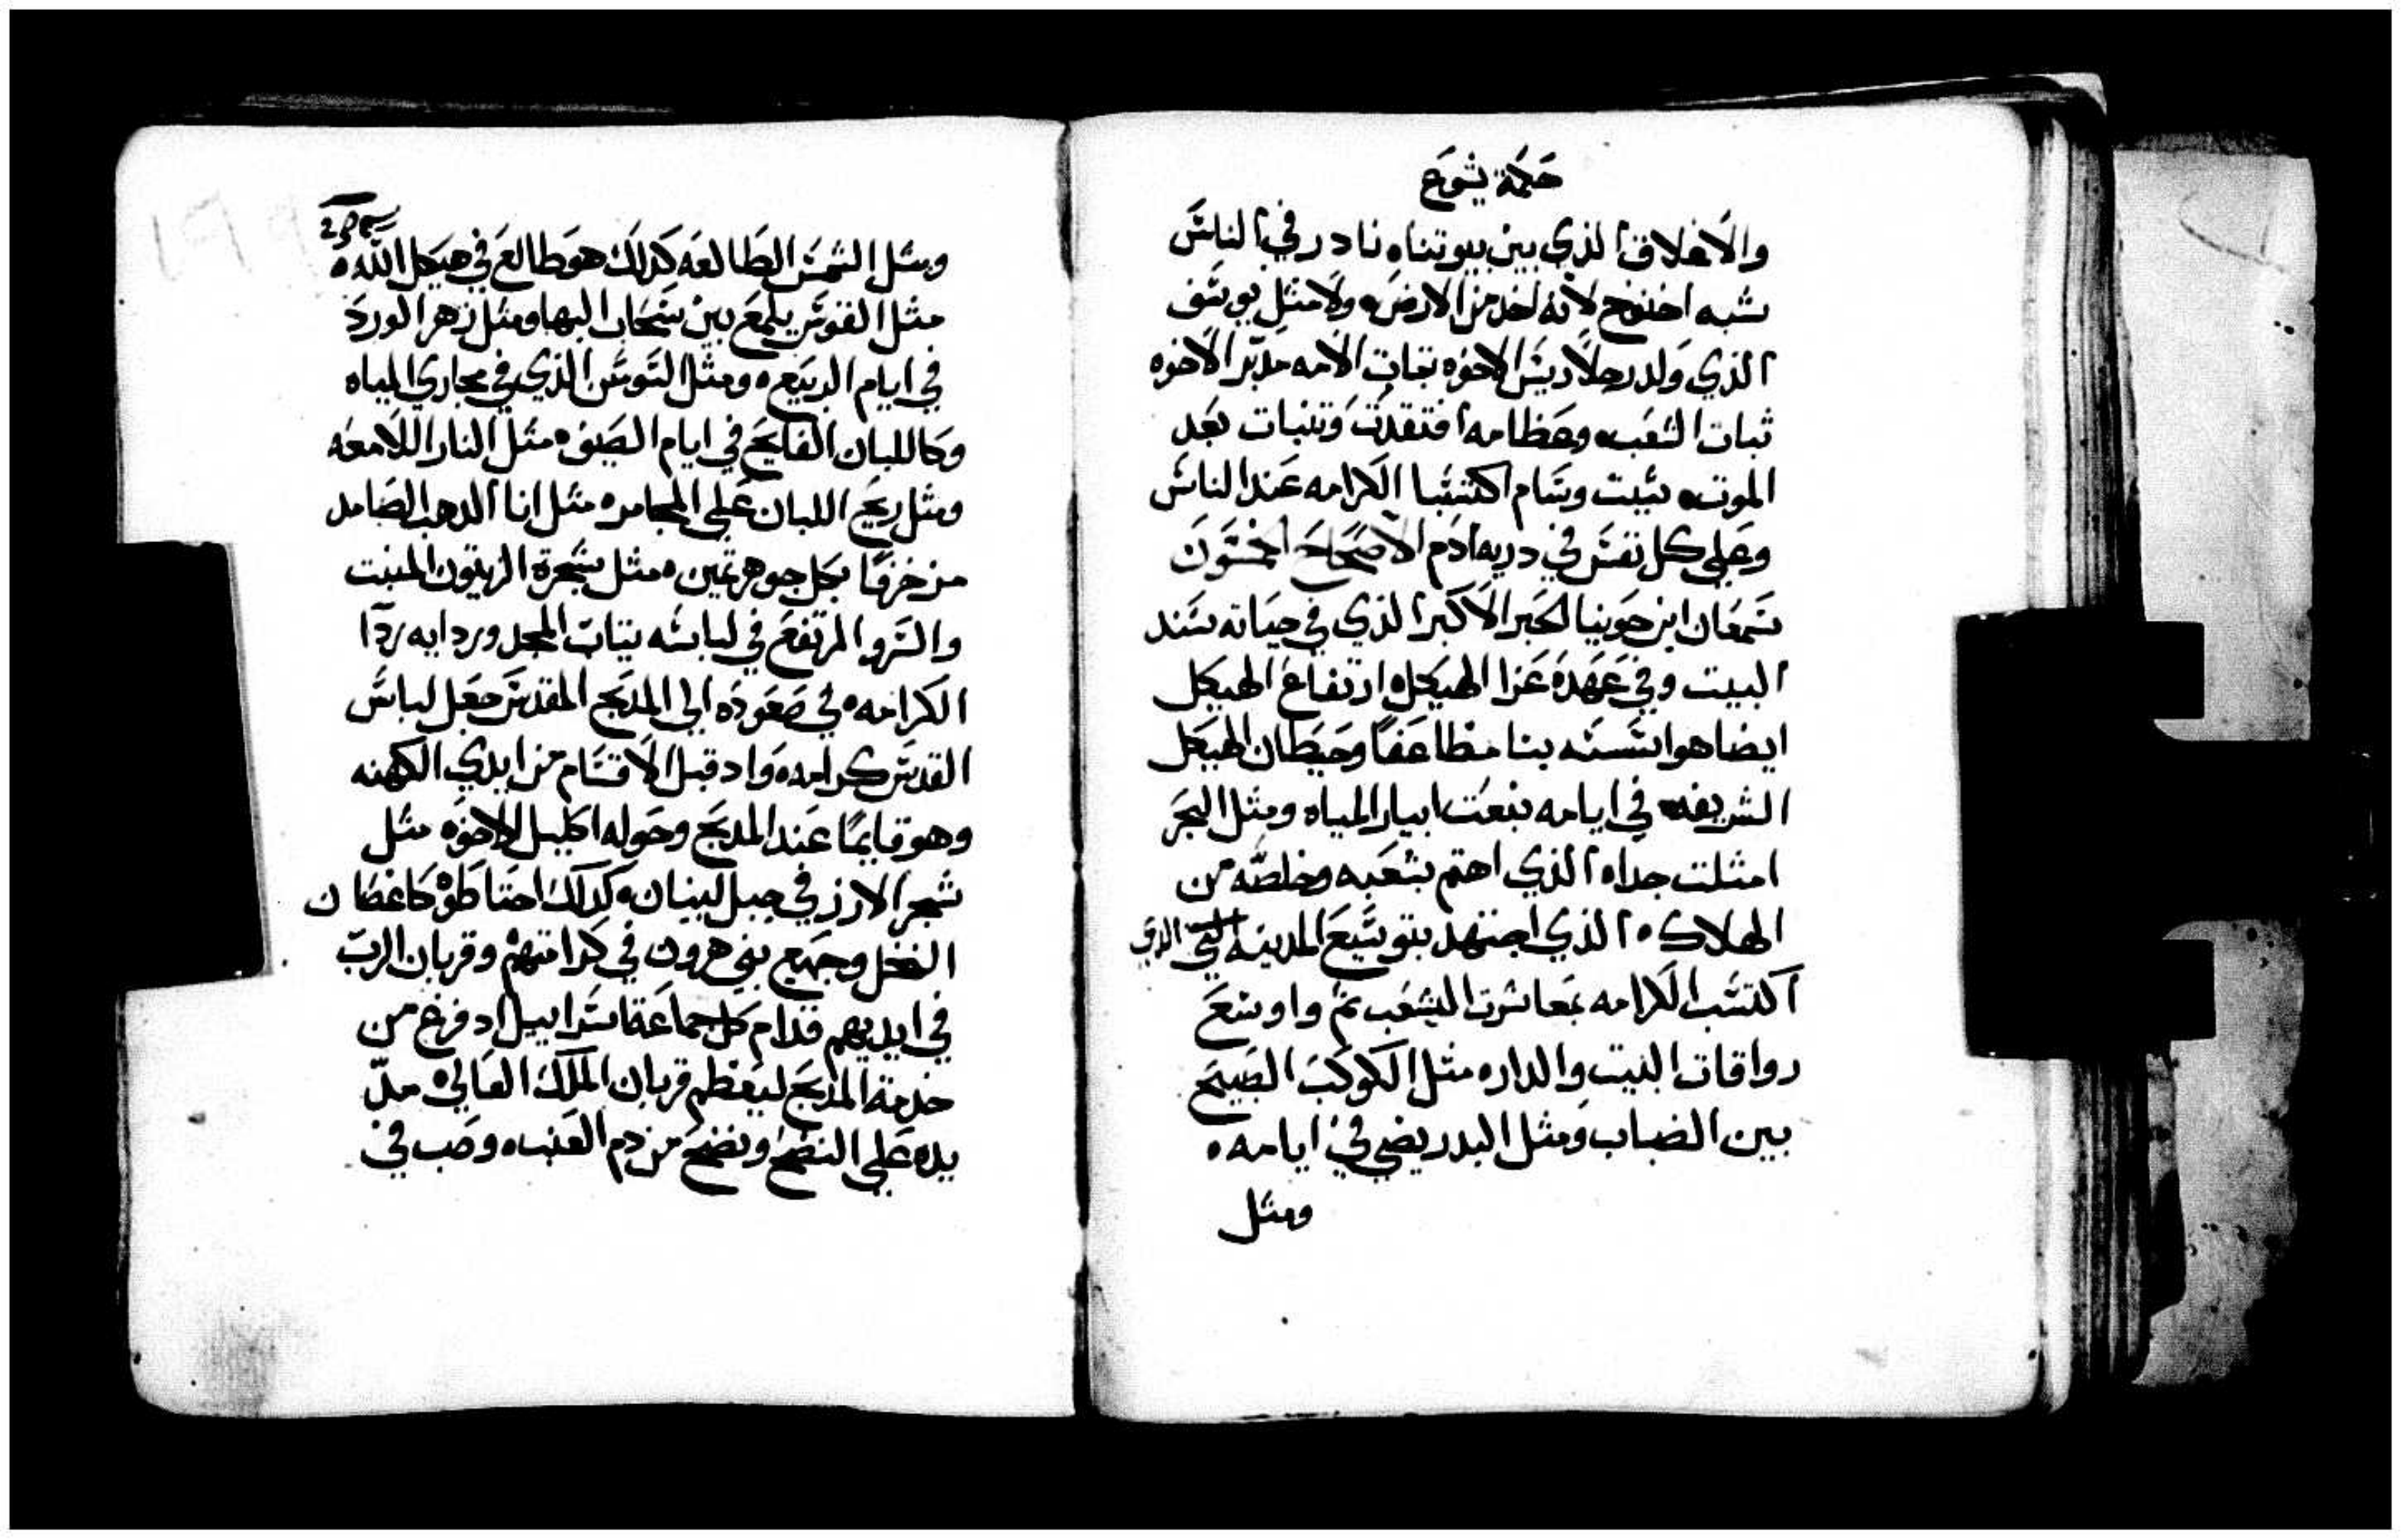 حكمة يشوع
والاخلاق الذي بين بيوتناه نادر في الناس
شبه اخنوخ لانه اخد من الارض ولا مثل يوسف
الذي ولد رجلا ريس الاخوه تبات الامه مدبر الاخوه
ثبات الشعب وعظامه افتقدت وتنبات بعد
الموت شيت وسام اكتسبا الكرامه عند الناس
وعلي كل نفس في دريه ادم الاصحاح الخمسون
سمعان ابن حونيا الحبر الاكبر الذي في حياته سند
البيت وفي عهده عزا الهيكل وارتفاع الهيكل
ايضا هو اسسه بنا مظاعفا وحيطان الهيكل
الشريفه في ايامه نبعت ابيار المياه ومثل البحر
امتلت جدا الذي اهتم بشعبه وخلصه من
الهلاك الذي اجتهد بتوسيع المدينه التي الذي
اكتسب الكرامه بمعاشرت الشعب تم واوسع
رواقات البيت والداره مثل الكوكب الصبيح
بين الضباب ومثل البدر يضي في ايامه
ومثل
ومثل الشمس الطالعه كدلك هو طالع في هيكل الله
مثل القوس يلمع بين سحاب البها ومثل زهر الورد
في ايام الربيع ومثل السوسن الذي في مجاري المياه
وكاللبان الفايح في ايام الصيف مثل النار اللامعه
ومثل ريح اللبان علي المجامر مثل انا الدهب الصامد
مزخرفا بكل جوهر تمين مثل شجرة الزيتون المنبت
والسرو المرتفع في لباسه تياب المجد وردايه ردا
الكرامه في صعوده الي المدبح المقدس جعل لباس
القدس كرامه واد قبل الاقسام من ايدي الكهنه
وهو قايما عند المدبح وحوله اكليل الاخوه مثل
شجر الارز في جبل لبنان كدلك احتاطوه كاغصان
النخل وجميع بني هرون في كرامتهم وقربان الرب
في ايديهم قدام كل جماعة اسراييل اد فرغ من
خدمة المدبح ليعظم قربان الملك العالي مد
يده علي النضح ونضح من دم العنب وصب في